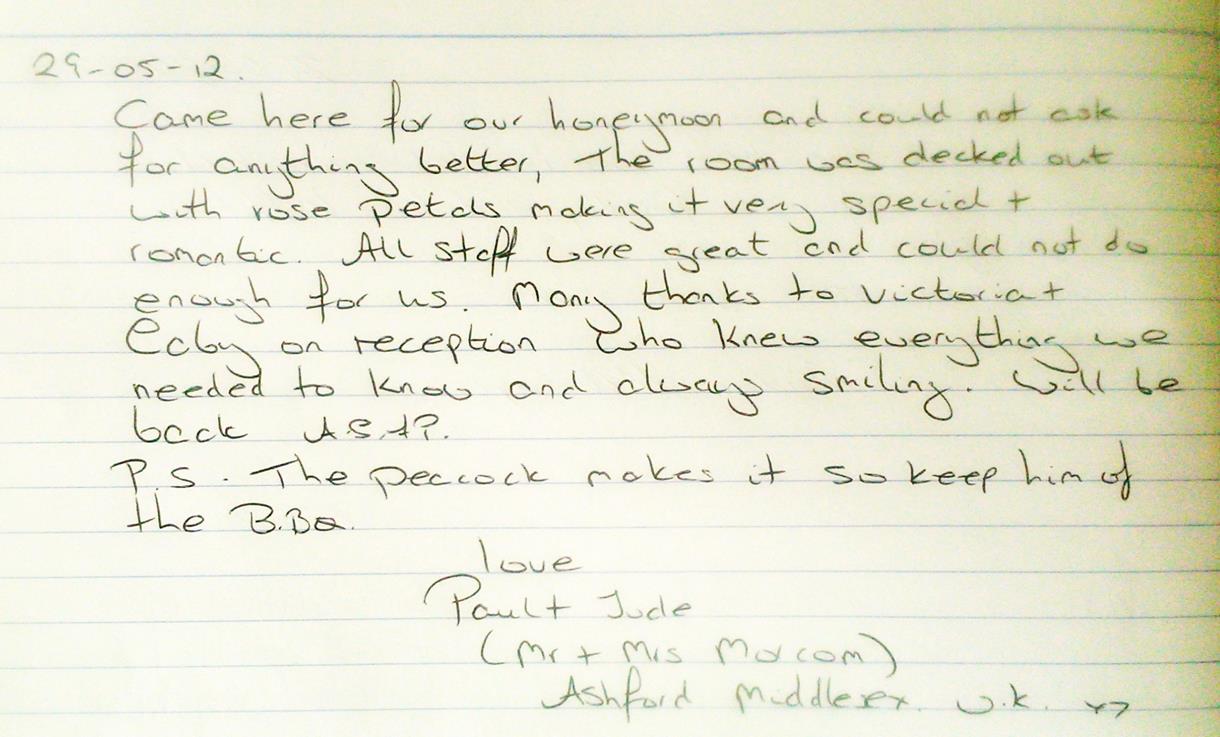 29-05-12.
Came here for our honeymoon and could not ask
for anything better, The room was decked out
with rose petals making it very special +
romantic. All staff were great and could not do
enough for us. Many thanks to Victoria +
on reception who knew everything we
needed to know and always smiling. Will be
back A.S.A.P.
P.S. The peacock makes it so keep him of
the B.BQ.
love
Paul + Jude
(Mr + Mrs Morcom)
Ashford Middlesex. U.K.